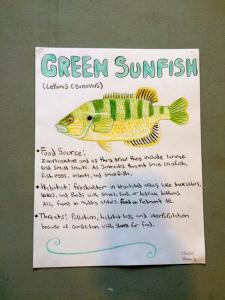 GREEN SUNFISH
(Lepomis cyanellus)
• Food Source:
Zooplankton and as they grow they include larvae
and small snails. As summer they eat small crayfish,
fish eggs, insects, and small fish.
• Habitat: freshwater in vegetated areas like
lakes, and Ponds with gravel, sand, or bedrock bottoms.
Also found in muddy waters. Found in Piedmont
• Threats: Pollution, habitat loss and overpopulation
because of competition with for food.